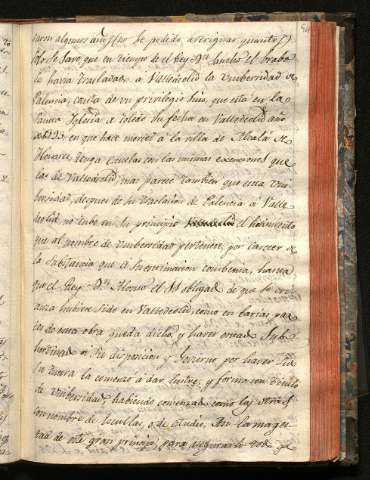 algunos años (no he podido averiguar quantos)
que en tiempo de el Rey Dn. Sancho el Brabo
se havia trasladado a Valladolid la Vniversidad de
Palencia, consta de vn privilegio suyo, que esta en la
Santa Yglesia de Toledo su fecha en Valladolid año
de 1293 en que hace merced a la villa de Alcalá de
Henares, tenga Escuelas con las mismas exenciones que
las de Valladolid, mas parece tambien que esta Vni
bersidad, despues de su traslacion de Palencia a Valla
dolid no tubo en su principio el lucimiento
que al nombre de Vnibersidad pertenece, por carecer de
la substancia que a su denominacion combenia, hasta
que el Rey Dn. Alonso el XI obligado de que su cri
anza hubiese sido en Valladolid, como en barias par
tes de esta obra queda dicho, y haver estado
a su disposicion y Govierno por haver
la comenzo a dar lustre, y forma con titulo
de Vnibersidad, habiendo comenzado como las otras
con nombre de Escuelas, o de estudio. En la mages
tad de este gran principe, para asegurar